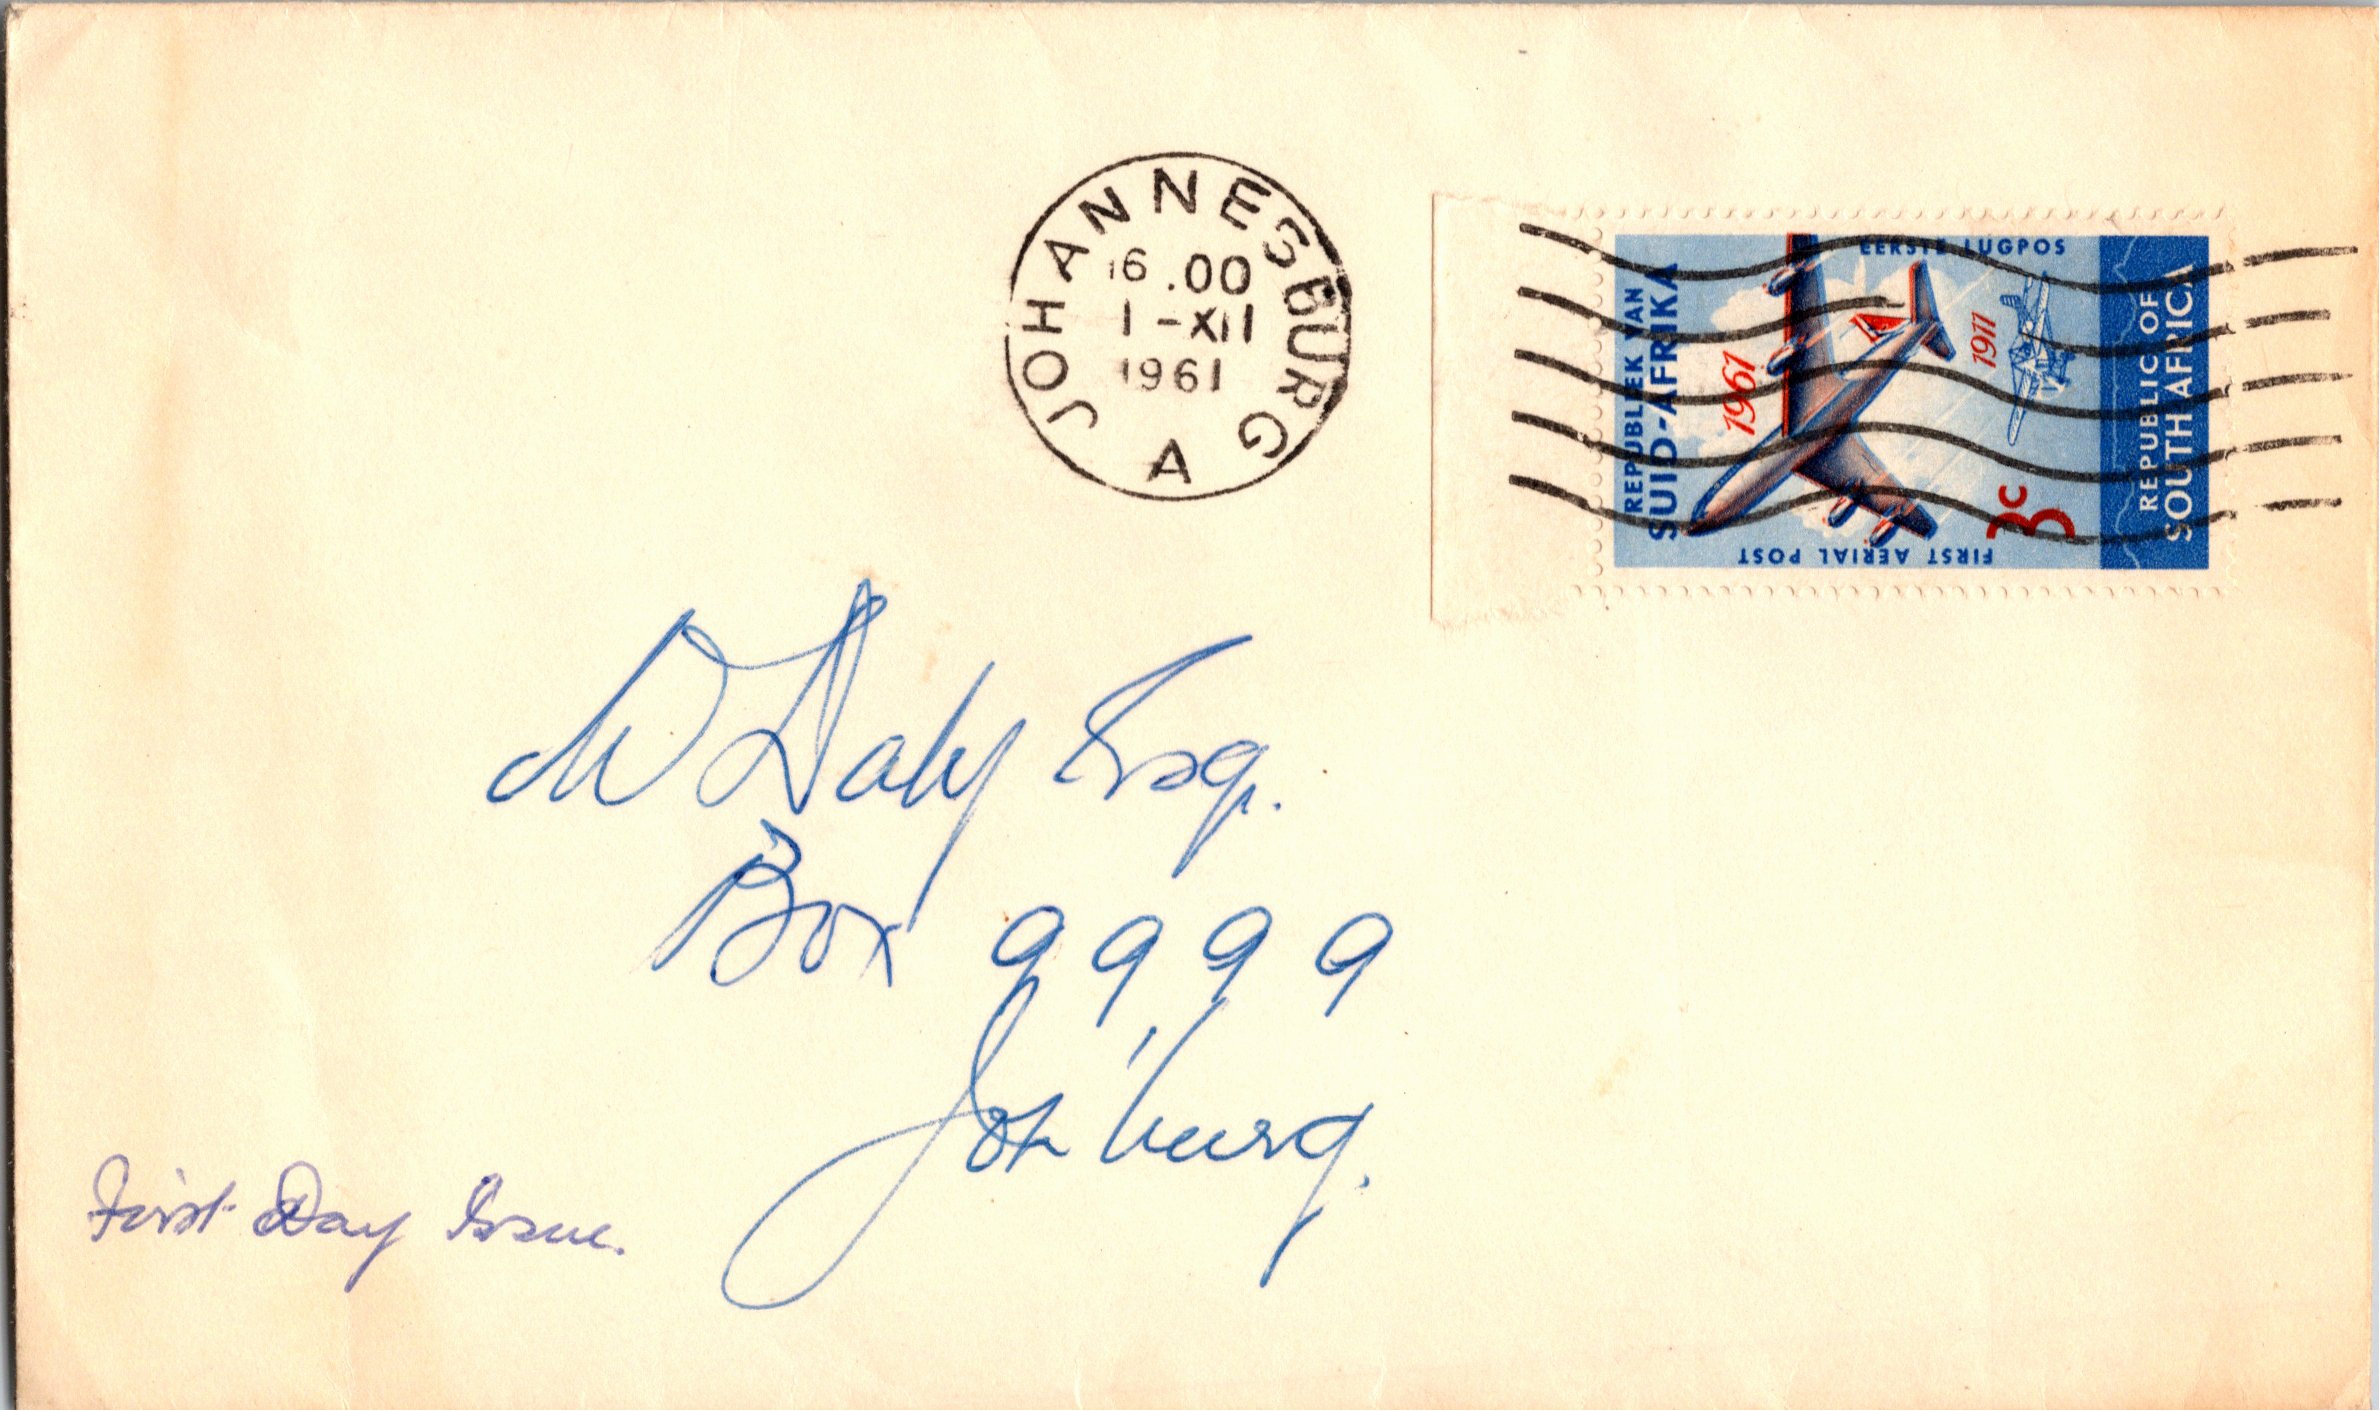 JOHANNESBURG
16.00
1-XII
1961
A
EERSTE LUGPOS
REPUBLIEK VAN
SUID-AFRIKA
1961
1911
3c
REPUBLIC OF
SOUTH AFRICA
FIRST AERIAL POST
W Daly Esq.
Box 9999
Joh'burg.
First Day Issue.